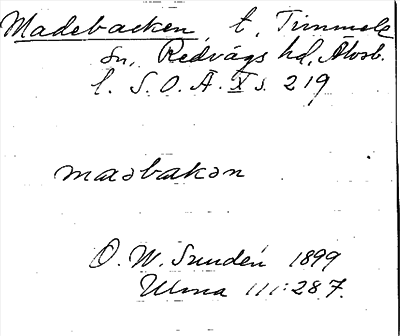 Madebacken, t. Timmele
sn, Redvägs hd, Älvsb.
l. S. O. Ä. X s. 219
maəbakən
O. W. Sundén 1899
Ulma 111:287.